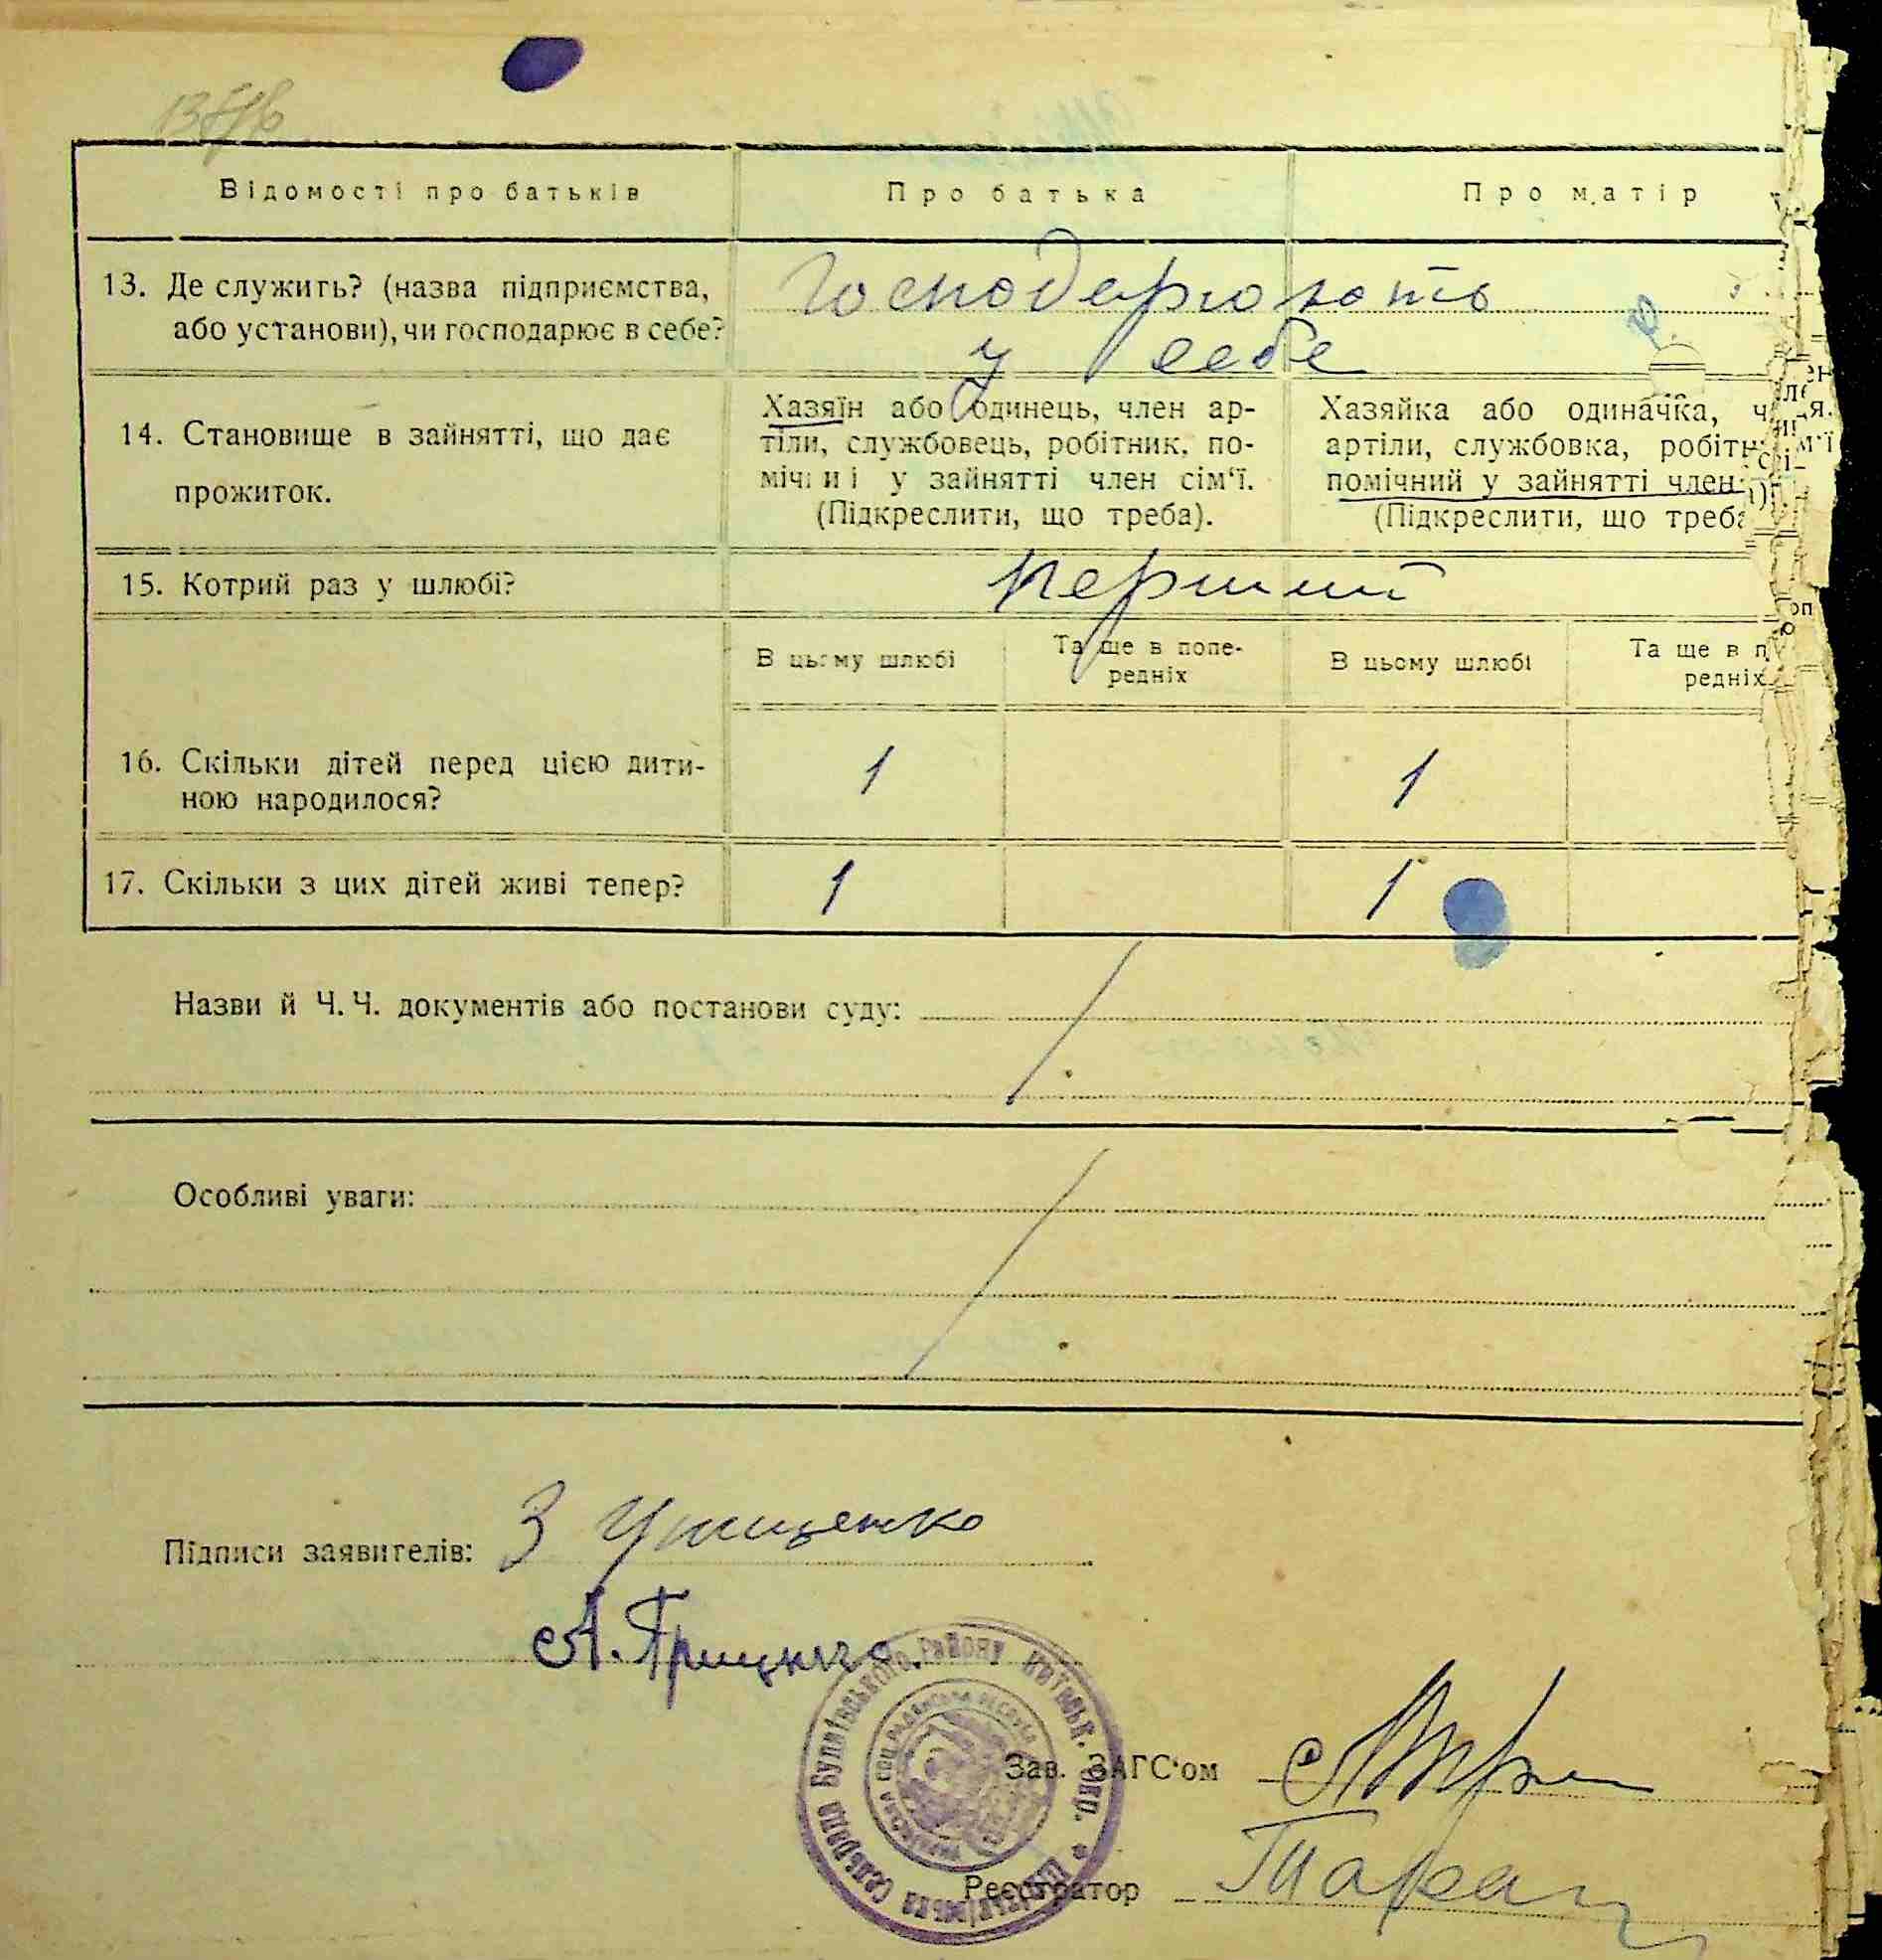 Відомості про батьків
Про батька
Про матір
13. Де служить? (назва підприємства,
або установи), чи господарює в себе?
Господарюють
у себе
14. Становище в зайнятті, що дає
прожиток.
Хазяїн або одинець, член ар-
тіли, службовець, робітник, по-
мічний у зайнятті член сім'ї.
(Підкреслити, що треба).
Хазяйка або одиначка, ч
артіли, службовка, робітн
помічний у зайнятті член
(Підкреслити, що треба
15. Котрий раз у шлюбі?
перший
В цьому шлюбі
Та ще в попе-
редніх
В цьому шлюбі
Та ще в п
редніх
16. Скільки дітей перед цією дити-
ною народилося?
1
1
17. Скільки з цих дітей живі тепер?
1
1
Назви й Ч. Ч. документів або постанови суду:
Особливі уваги:
Підписи заявителів:
З
А.
Зав. ЗАГС'ом
Реєстратор
Таран
сельрада Будаївського району Київськ. Окр.